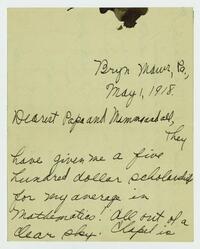 Bryn Mawr, Pa.,
May 1, 1918.
Dearest Papa and Mamma and all,
They
have given me a five
hundred dollar scholarship
for my average in
Mathematics! All out of a
clear sky. Chapel is